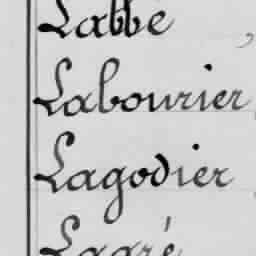 Labbe
Labourier
Lagodier
Lagré